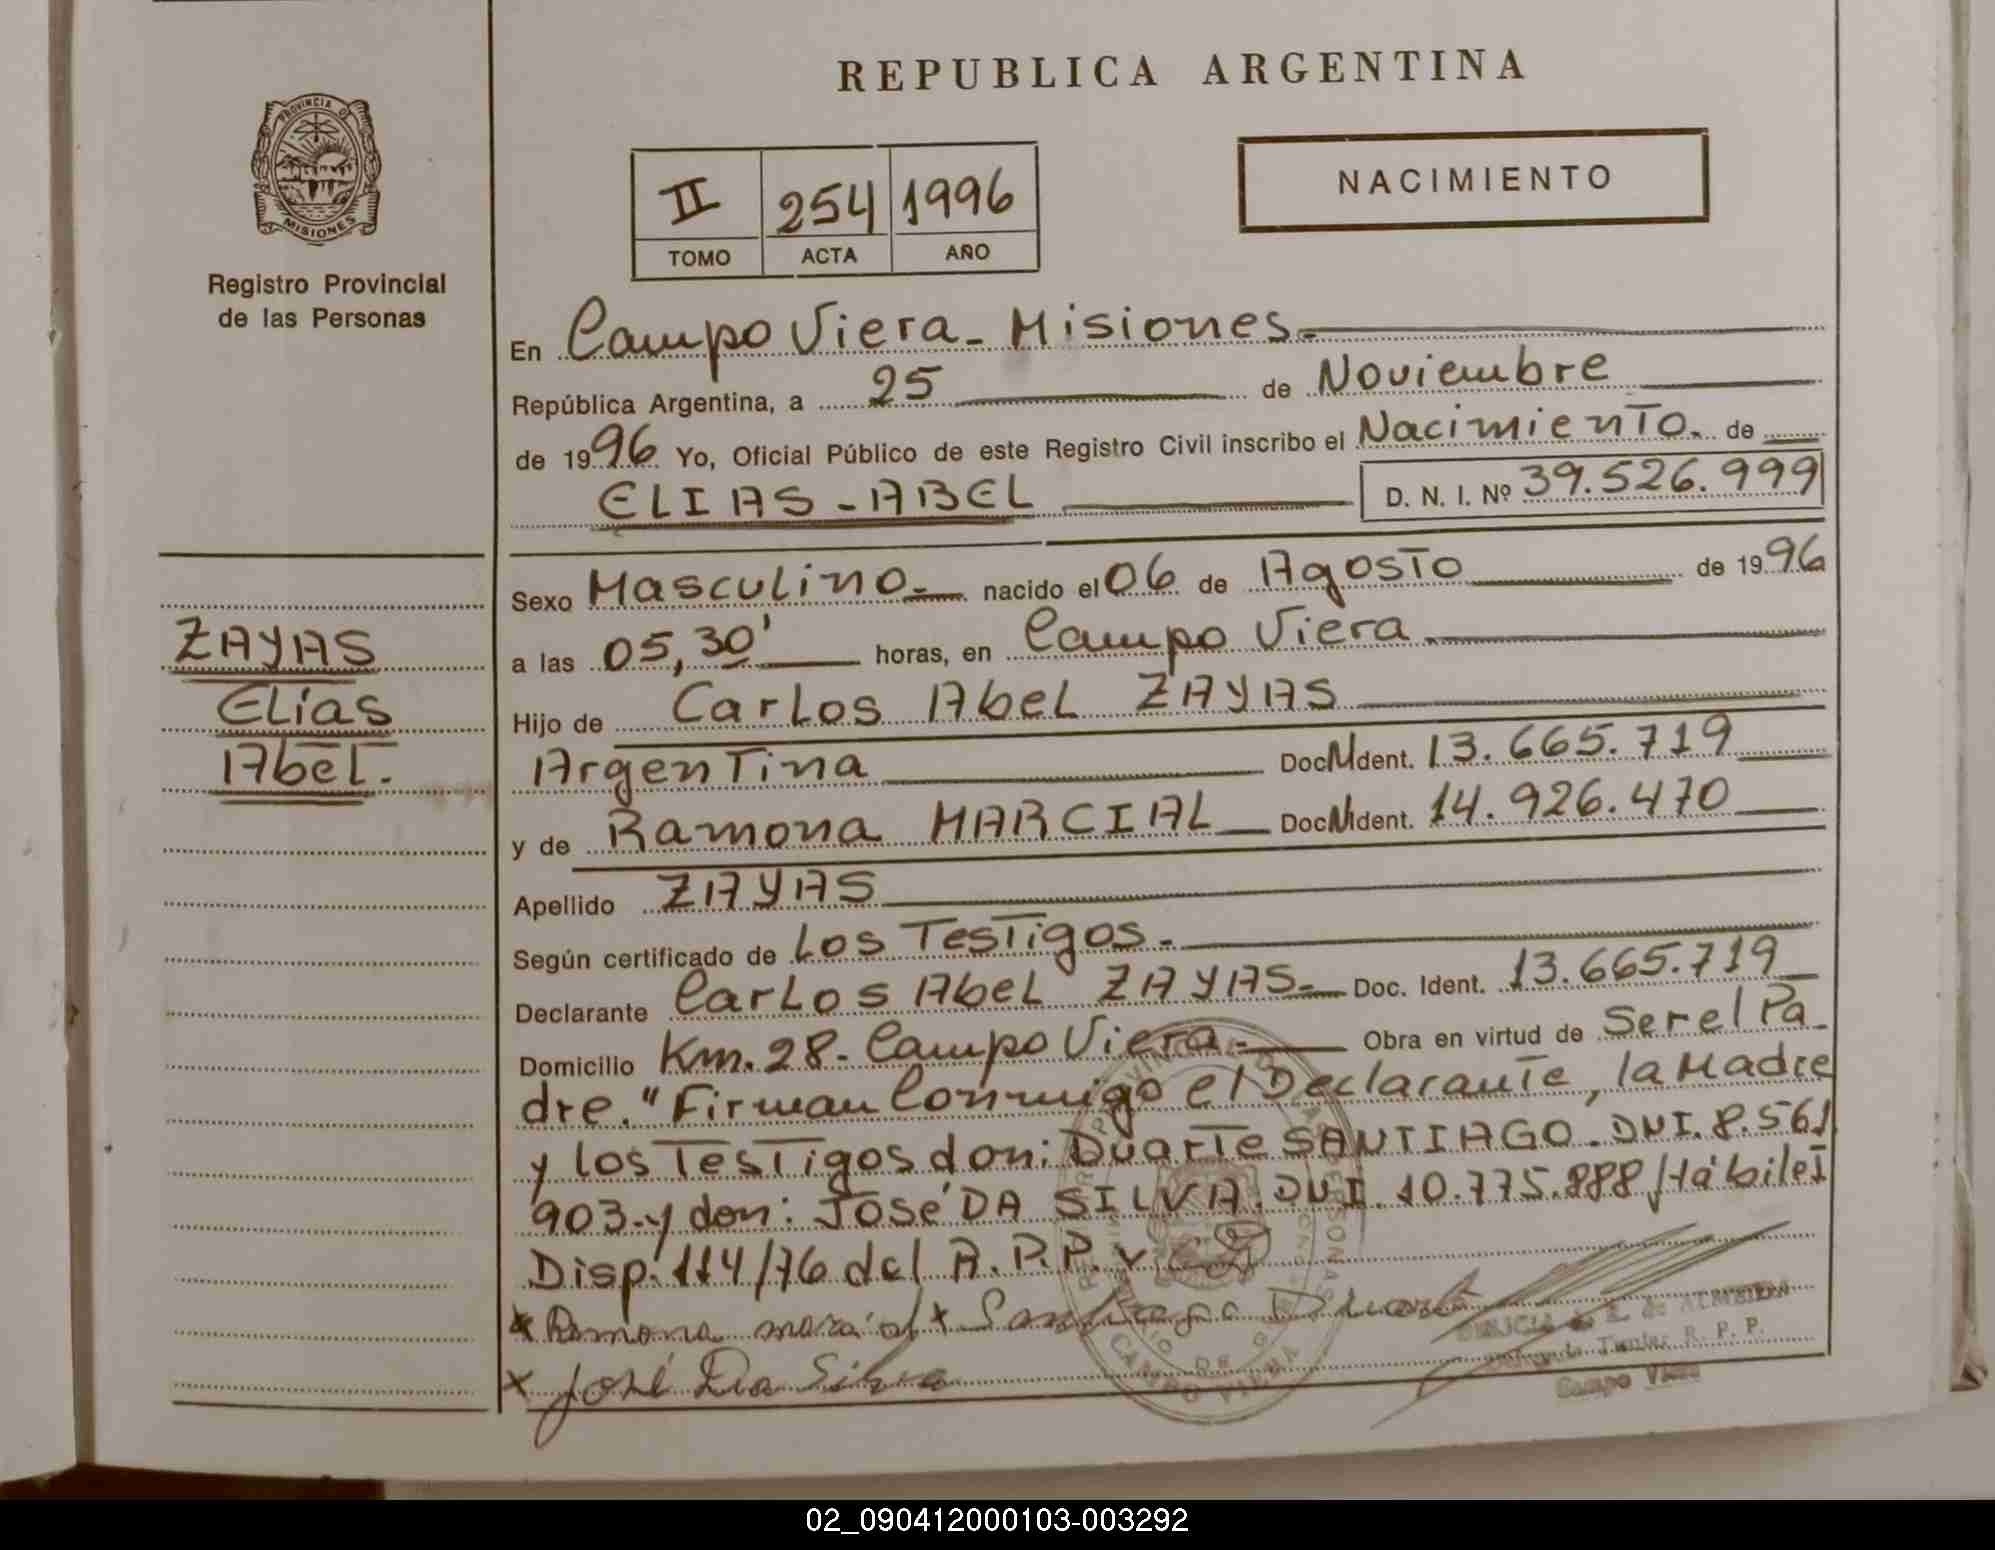 REPUBLICA ARGENTINA
PROVINCIA DE
MISIONES
Registro Provincial
de las Personas
II 254 1996
TOMO ACTA AÑO
NACIMIENTO
En Campo Viera - Misiones.
República Argentina, a 25 de Noviembre
de 1996 Yo, Oficial Público de este Registro Civil inscribo el Nacimiento. de
ELIAS - ABEL D. N. I. Nº 39.526.999
ZAYAS
Elías
Abel.
Sexo Masculino. nacido el 06 de Agosto de 1996
a las 05,30' horas, en Campo Viera
Hijo de Carlos Abel ZAYAS
Argentina Doc. Ident. 13.665.719
y de Ramona MARCIAL Doc. Ident. 14.926.470
Apellido ZAYAS
Según certificado de Los Testigos.
Declarante Carlos Abel ZAYAS. Doc. Ident. 13.665.719
Domicilio Km. 28 - Campo Viera. Obra en virtud de Ser el Pa-
dre. "Firman Conmigo el Declarante, la Madre
y los Testigos don: Duarte SANTIAGO. DNI. 8.561.
903. y don: José DA SILVA. DNI. 10.775.888/Hábiles
Disp. 114/76 del R.P.P.
x Ramona x Santiago Duarte
x José Da Silva
de ALMEIDA
R. P. P.
Campo Viera
CAMPO VIERA
02_090412000103-003292